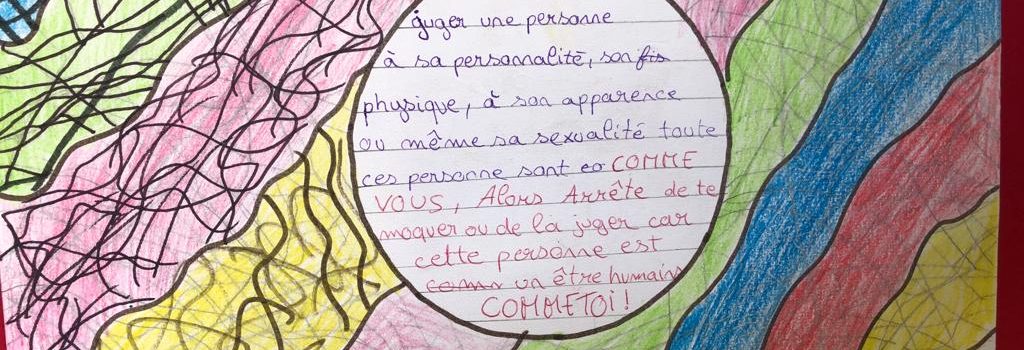 juger une personne
à sa personnalité, son fis
physique, à son apparence
ou même sa sexualité toute
ces personne sont co COMME
VOUS, Alors Arrête de te
moquer ou de la juger car
cette personne est
comm un être humain
COMME TOI !